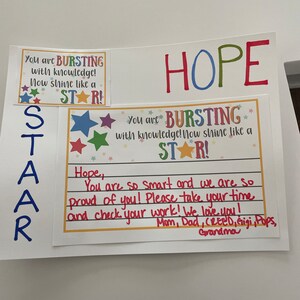 You are BURSTING
with knowledge!
Now shine like a
STAR!
HOPE
STAAR
You are BURSTING
with knowledge! Now shine like a
STAR!
Hope,
You are so smart and we are so
proud of you! Please take your time
and check your work! We love you!
Mom, Dad, CREED, Gigi, Pops,
Grandma